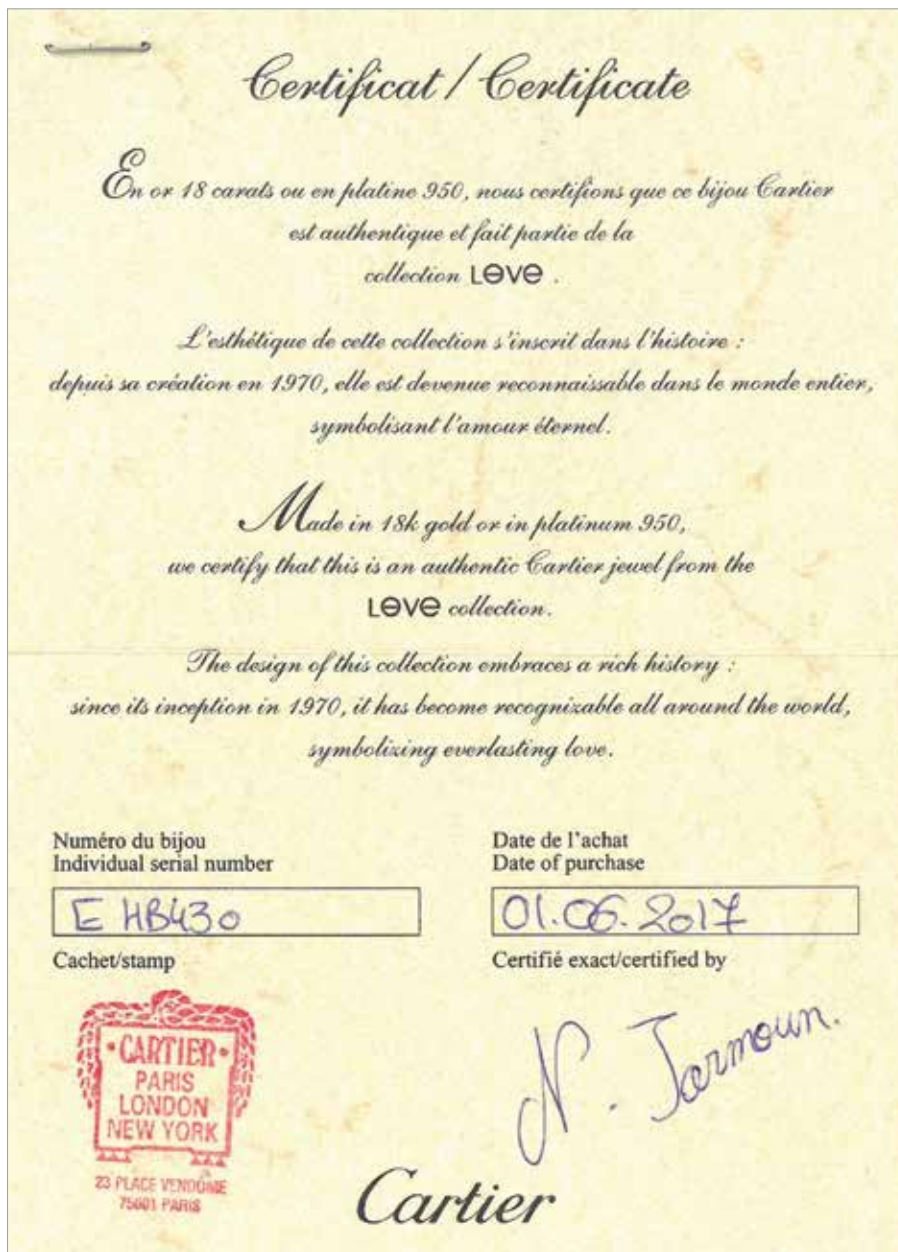 Certificat / Certificate
En or 18 carats ou en platine 950, nous certifions que ce bijou Cartier
est authentique et fait partie de la
collection LOVE .
L'esthétique de cette collection s'inscrit dans l'histoire :
depuis sa création en 1970, elle est devenue reconnaissable dans le monde entier,
symbolisant l'amour éternel.
Made in 18k gold or in platinum 950,
we certify that this is an authentic Cartier jewel from the
LOVE collection.
The design of this collection embraces a rich history :
since its inception in 1970, it has become recognizable all around the world,
symbolizing everlasting love.
Numéro du bijou
Individual serial number
E HB430
Date de l'achat
Date of purchase
01.06.2017
Cachet/stamp
CARTIER
PARIS
LONDON
NEW YORK
23 PLACE VENDÔME
75001 PARIS
Certifié exact/certified by
N. Jarmoun.
Cartier